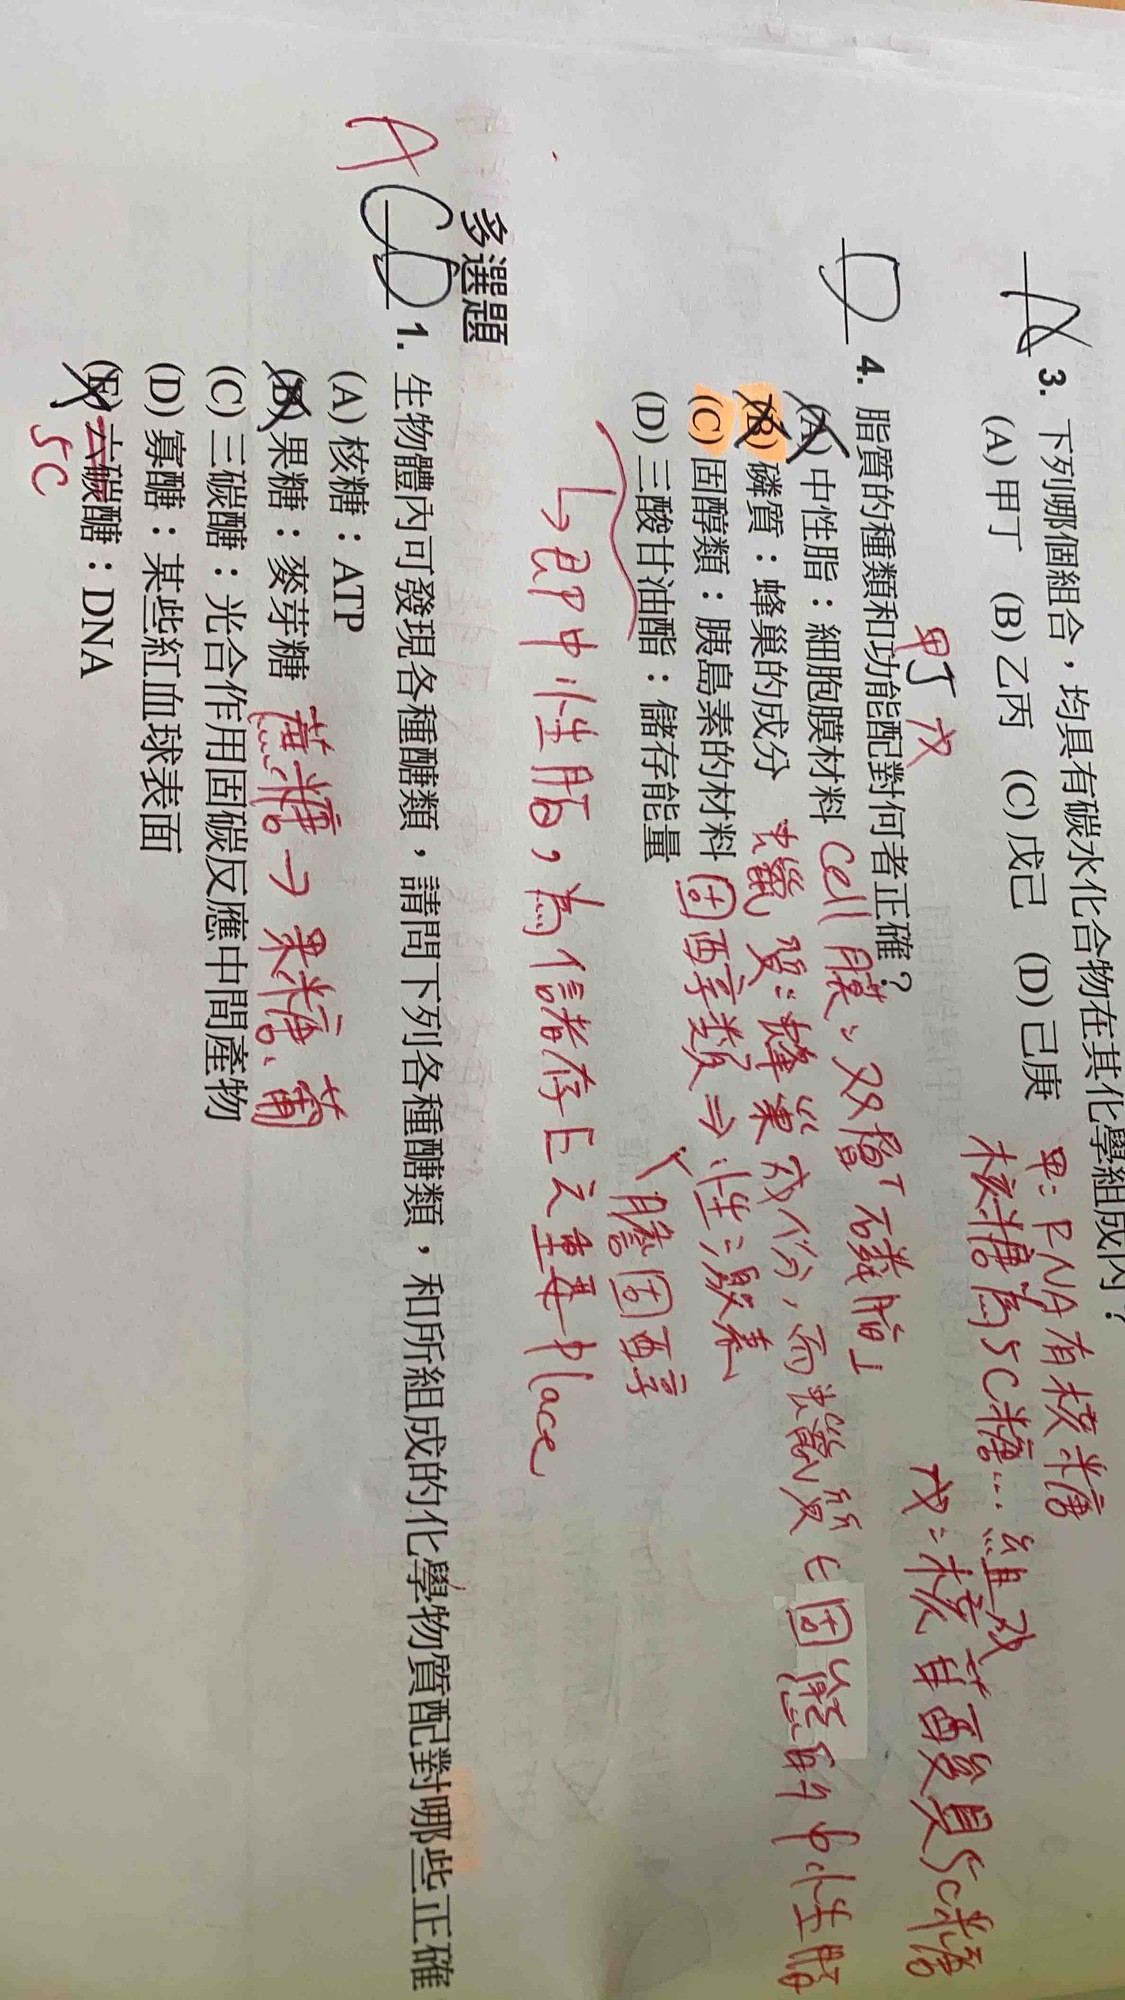 A 3. 下列哪個組合，均具有碳水化合物在其化學組成內？
(A) 甲丁 (B) 乙丙 (C) 戊己 (D) 己庚
甲：RNA有核糖
核糖為5C糖… 組成
甲丁戊
戊：核苷酸具5C糖
D 4. 脂質的種類和功能配對何者正確？
(A) 中性脂：細胞膜材料 Cell膜：双層磷脂
(B) 磷質：蜂巢的成分 蠟質：蜂巢成份，而蠟質所 固態 中性脂
(C) 固醇類：胰島素的材料 固醇類⇒性激素
膽固醇
(D) 三酸甘油酯：儲存能量
↳即中性脂，為儲存E之重要place
多選題
A CD 1. 生物體內可發現各種醣類，請問下列各種醣類，和所組成的化學物質配對哪些正確
(A) 核糖：ATP
(B) 果糖：麥芽糖 蔗糖→果糖、葡
(C) 三碳醣：光合作用固碳反應中間產物
(D) 寡醣：某些紅血球表面
(E) 六碳醣：DNA
5C